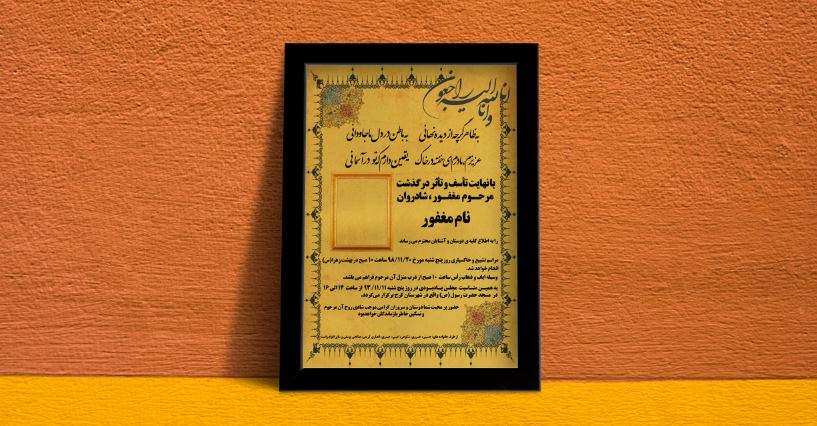 انا لله و انا الیه راجعون
به ظاهر گرچه از دیده نهانی به باطن در دل ما جاودانی
عزیزم، مادرم ای خفته در خاک یقین دارم که تو در آسمانی
با نهایت تأسف و تأثر درگذشت
مرحوم مغفور، شادروان
نام مغفور
را به اطلاع کلیه ی دوستان و آشنایان محترم می رساند
مراسم تشییع و خاکسپاری روز پنج شنبه مورخ ۹۸/۱۱/۲۰ ساعت ۱۰ صبح در بهشت زهرا(س)
انجام خواهد شد.
وسیله ایاب و ذهاب رأس ساعت ۱۰ صبح از درب منزل آن مرحوم فراهم می باشد.
به همین مناسبت مجلس یادبودی در روز پنج شنبه ۹۳/۱۱/۱۱ از ساعت ۱۴ الی ۱۶
در مسجد حضرت رسول (ص) واقع در شهرستان کرج برگزار می گردد.
حضور پر محبت شما دوستان و سروران گرامی موجب شادی روح آن مرحوم
و تسکین خاطر بازماندگان خواهد بود
از طرف خانواده های: